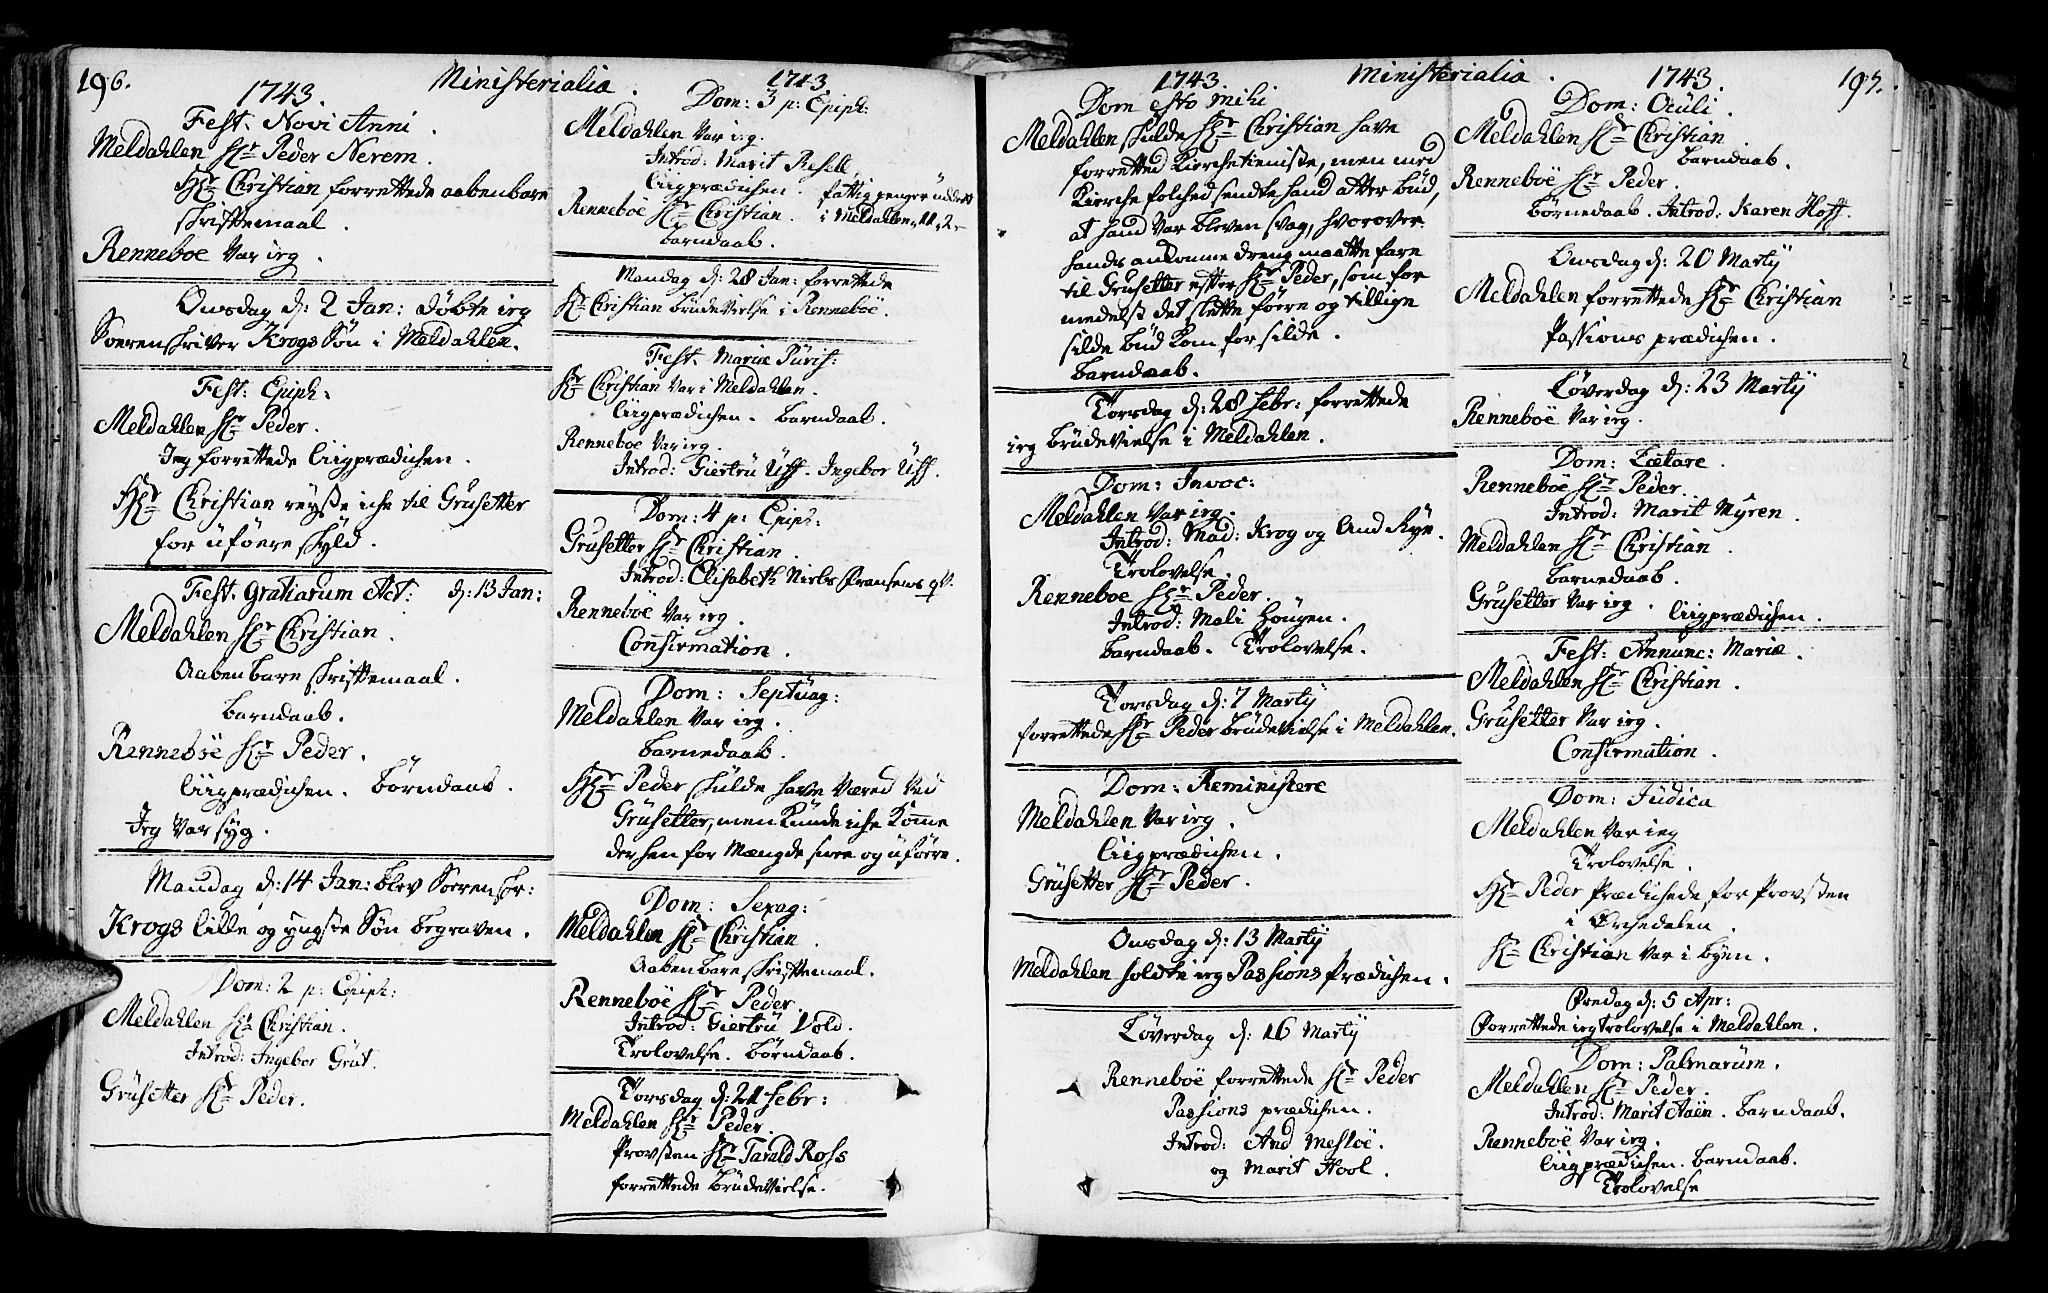 196.
Ministerialia.
1743.
Fest. Novi Anni.
Meldahlen Hr Peder Nerem.
Hr Christian forrettede aabenbare
skriftemaal.
Renneboe var ieg.
Onsdag d: 2 Jan: døbte ieg
Sorenskriver Krogs Søn i Meldahlen.
Fest: Epiph:
Meldahlen Hr Peder.
Jeg forrettede Liigprædichen.
Hr Christian reyste iche til Grüsetter
for üføere skyld.
Fest. Gratiarum Act: d: 13 Jan:
Meldahlen Hr Christian.
Aabenbare skriftemaal.
barndaab.
Renneboe Hr Peder.
Liigprædichen. Børndaab.
Jeg var syg.
Mandag d: 14 Jan: blev Sorenskr:
Krogs lille og yngste Søn begraven.
Dom: 2 p: Epiph:
Meldahlen Hr Christian.
Introd: Ingebor Grüt.
Grüsetter Hr Peder.
1743.
Dom: 3 p: Epiph:
Meldahlen var ieg.
Introd: Marit Resell.
Liigprædichen. fattig penger
Renneboe Hr Christian. i Meldahlen
barndaab.
Mandag d: 28 Jan: forrettede
Hr Christian brüdevielse i Renneboe.
Fest. Mariæ Pürif:
Hr Christian var i Meldahlen.
Liigprædichen. barndaab.
Renneboe var ieg.
Introd: Giertrü Üff. Ingebor Üff.
Dom: 4 p: Epiph:
Grüsetter Hr Christian.
Introd: Elisabeth Niels
Renneboe var ieg.
Confirmation.
Dom: Septüag:
Meldahlen var ieg.
barnedaab.
Hr Peder skülde have været ved
Grüsetter, men künde iche komme
derhen for mængde snee og üføere.
Dom: Sexag:
Meldahlen Hr Christian.
Aabenbare skriftemaal.
Renneboe Hr Peder.
Introd: Giertrü Vold.
Trolovelse. Børndaab.
Torsdag d: 21 Febr:
Meldahlen Hr Peder.
Provsten Hr Tarald Ross
forrettede brüdevielse.
Ministerialia.
197.
1743.
Dom Esto Mihi.
Meldahlen skülde Hr Christian have
forretted Kierchetieniste, men med
Kierche folched sendte hand atter bud,
at hand var bleven svag, hvorover
hands ankomne dreng maatte fare
til Grüsetter efter Hr Peder, som for
medelst det slette føere og tillige
silde bud kom for silde.
barndaab.
Torsdag d: 28 Febr: forrettede
ieg brüdevielse i Meldahlen.
Dom: Invoc:
Meldahlen var ieg.
Introd: Mad: Krog og And Rye.
Trolovelse.
Renneboe Hr Peder.
Introd: Mali Hougen.
barndaab. Trolovelse.
Torsdag d: 7 Martÿ
forrettede Hr Peder brüdevielse i Meldahlen.
Dom: Reministere
Meldahlen var ieg.
Liigprædichen.
Grüsetter Hr Peder.
Onsdag d: 13 Martÿ
Meldahlen holdte ieg Passions Prædichen.
Løverdag d: 16 Martÿ
Renneboe forrettede Hr Peder
Passions prædichen.
Introd: And Mesloe.
og Marit Hool.
1743.
Dom: Ocüli.
Meldahlen Hr Christian
barndaab.
Renneboe Hr Peder.
Børnedaab. Introd: Karen Hoff.
Onsdag d: 20 Martÿ
Meldahlen forrettede Hr Christian
Passions prædichen.
Løverdag d: 23 Martÿ
Renneboe var ieg.
Dom: Lætare.
Renneboe Hr Peder.
Introd: Marit Myren.
Meldahlen Hr Christian.
barnedaab.
Grüsetter var ieg. Liigprædichen.
Fest: Annunc: Mariæ.
Meldahlen Hr Christian.
Grüsetter var ieg.
Confirmation.
Dom: Jüdica
Meldahlen var ieg
Trolovelse.
Hr Peder Prædichede for Provsten
i Orchedalen.
Hr Christian var i byen.
Fredag d: 5 Apr:
forrettede ieg trolovelse i Meldahlen.
Dom: Palmarüm.
Meldahlen Hr Peder.
Introd: Marit Aaen. barndaab.
Renneboe var ieg.
Liigprædichen. barndaab.
Trolovelse